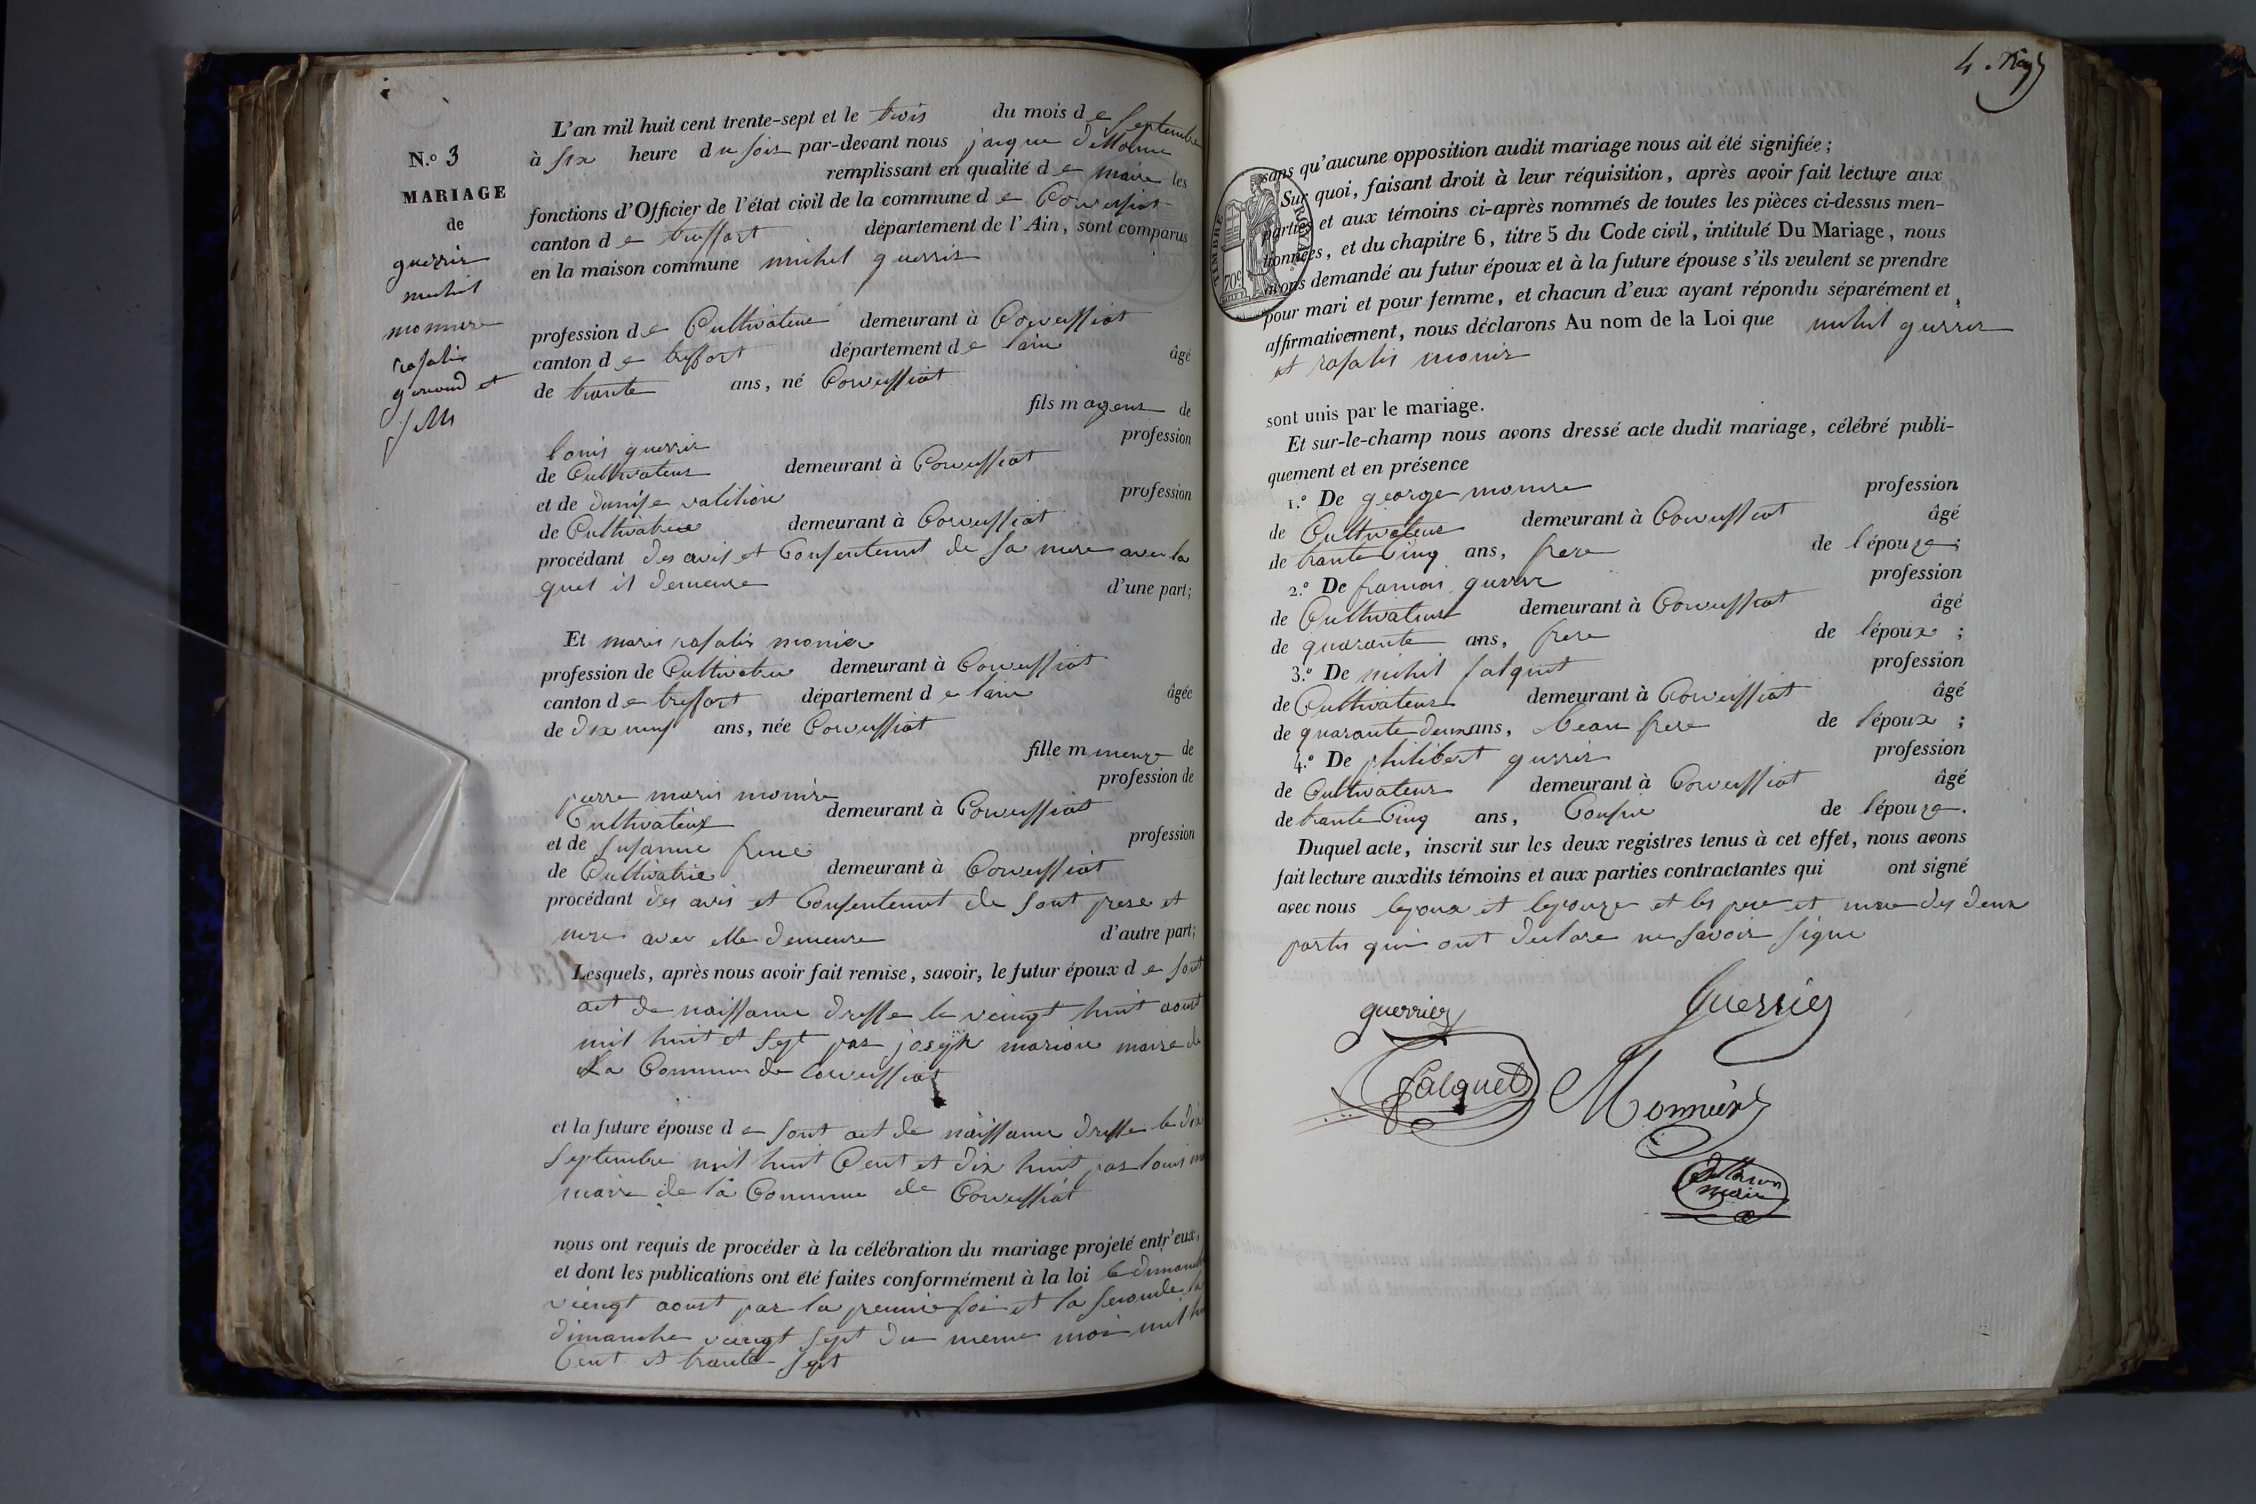 N.º 3
MARIAGE
de
guerrier
michel
monnier
rosalie
L'an mil huit cent trente-sept et le trois du mois de Septembre
à six heure du soir par-devant nous jacque
remplissant en qualité de maire les
fonctions d'Officier de l'état civil de la commune de Corveissiat
canton de treffort département de l'Ain, sont comparus
en la maison commune michel guerrier
profession de Cultivateur demeurant à Corveissiat
canton de treffort département de lain âgé
de trante ans, né Corveissiat
fils majeur de
louis guerrier profession
de Cultivateur demeurant à Corveissiat
et de denise profession
de Cultivatrice demeurant à Corveissiat
procédant des avis et Consentement de sa mere avec la
quel il demeure d'une part;
Et marie rosalie monier
profession de Cultivatrice demeurant à Corveissiat
canton de treffort département de lain âgée
de dix neuf ans, née Corveissiat
fille mineure de
pierre marie monier profession de
Cultivateur demeurant à Corveissiat
et de susanne profession
de Cultivatrice demeurant à Corveissiat
procédant des avis et Consentement de sont pere et
mere avec elle demeure d'autre part;
Lesquels, après nous avoir fait remise, savoir, le futur époux de sont
act de naissance dresse le veingt huit aoust
mil huit et sept par joseph marion maire de
La Commune de Corveissiat
et la future épouse de sont act de naissance dresse le dix
septembre mil huit Cent et dix huit par louis
maire de la Commune de Corveissiat
nous ont requis de procéder à la célébration du mariage projeté entr'eux,
et dont les publications ont été faites conformément à la loi le dimanche
veingt aoust par la premie foi et la seconde le
dimanche veingt sept du meme moi mil
Cent et trante sept
4.
TIMBRE ROYAL
70c
sans qu'aucune opposition audit mariage nous ait été signifiée;
Sur quoi, faisant droit à leur réquisition, après avoir fait lecture aux
parties et aux témoins ci-après nommés de toutes les pièces ci-dessus men-
tionnées, et du chapitre 6, titre 5 du Code civil, intitulé Du Mariage, nous
avons demandé au futur époux et à la future épouse s'ils veulent se prendre
pour mari et pour femme, et chacun d'eux ayant répondu séparément et
affirmativement, nous déclarons Au nom de la Loi que michel guerrier
et rosalie monier
sont unis par le mariage.
Et sur-le-champ nous avons dressé acte dudit mariage, célébré publi-
quement et en présence
1.º De george monnier profession
de Cultivateur demeurant à Corveissiat âgé
de trante Cinq ans, frere de l'épouze;
2.º De francois guerrier profession
de Cultivateur demeurant à Corveissiat âgé
de quarante ans, frere de l'époux;
3.º De michel falquet profession
de Cultivateur demeurant à Corveissiat âgé
de quarante deux ans, beau frere de l'époux;
4.º De philibert guerrier profession
de Cultivateur demeurant à Corveissiat âgé
de trante Cinq ans, Cousin de l'épouze.
Duquel acte, inscrit sur les deux registres tenus à cet effet, nous avons
fait lecture auxdits témoins et aux parties contractantes qui ont signé
avec nous lepoux et lepouze et les pere et mere des deux
partis qui ont declare ne savoir signe
guerrier
Guerrier
falquet
Monnier
maire